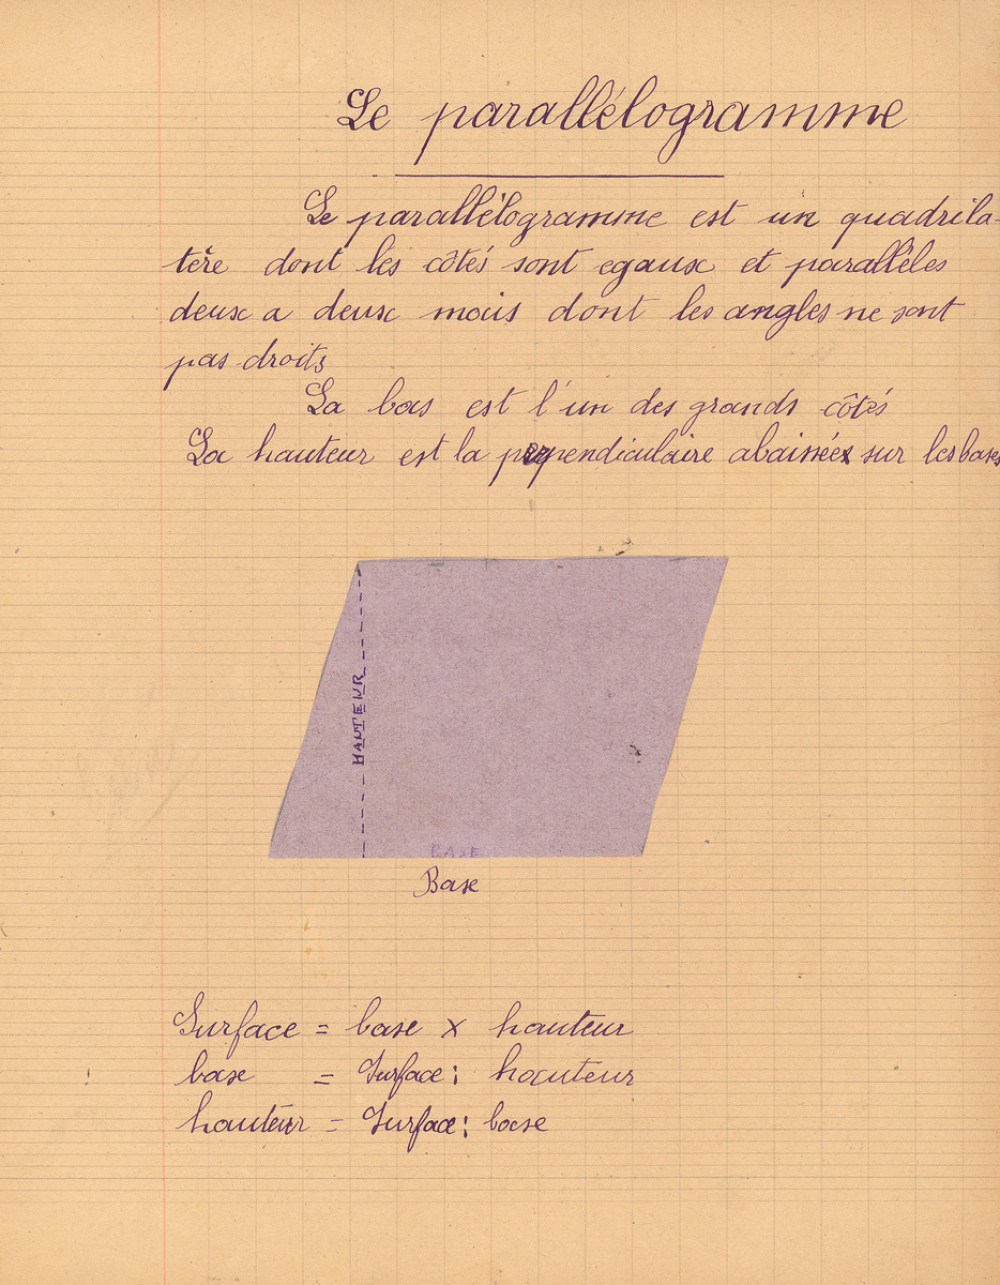 Le parallélogramme
Le parallélogramme est un quadrila-
tère dont les côtés sont egaux et parallèles
deux a deux mais dont les angles ne sont
pas droits
La bas est l'un des grands côtés
La hauteur est la perpendiculaire abaissée sur les bases
HAUTEUR
BASE
Base
Surface = base x hauteur
base = Surface : hauteur
hauteur = Surface : base